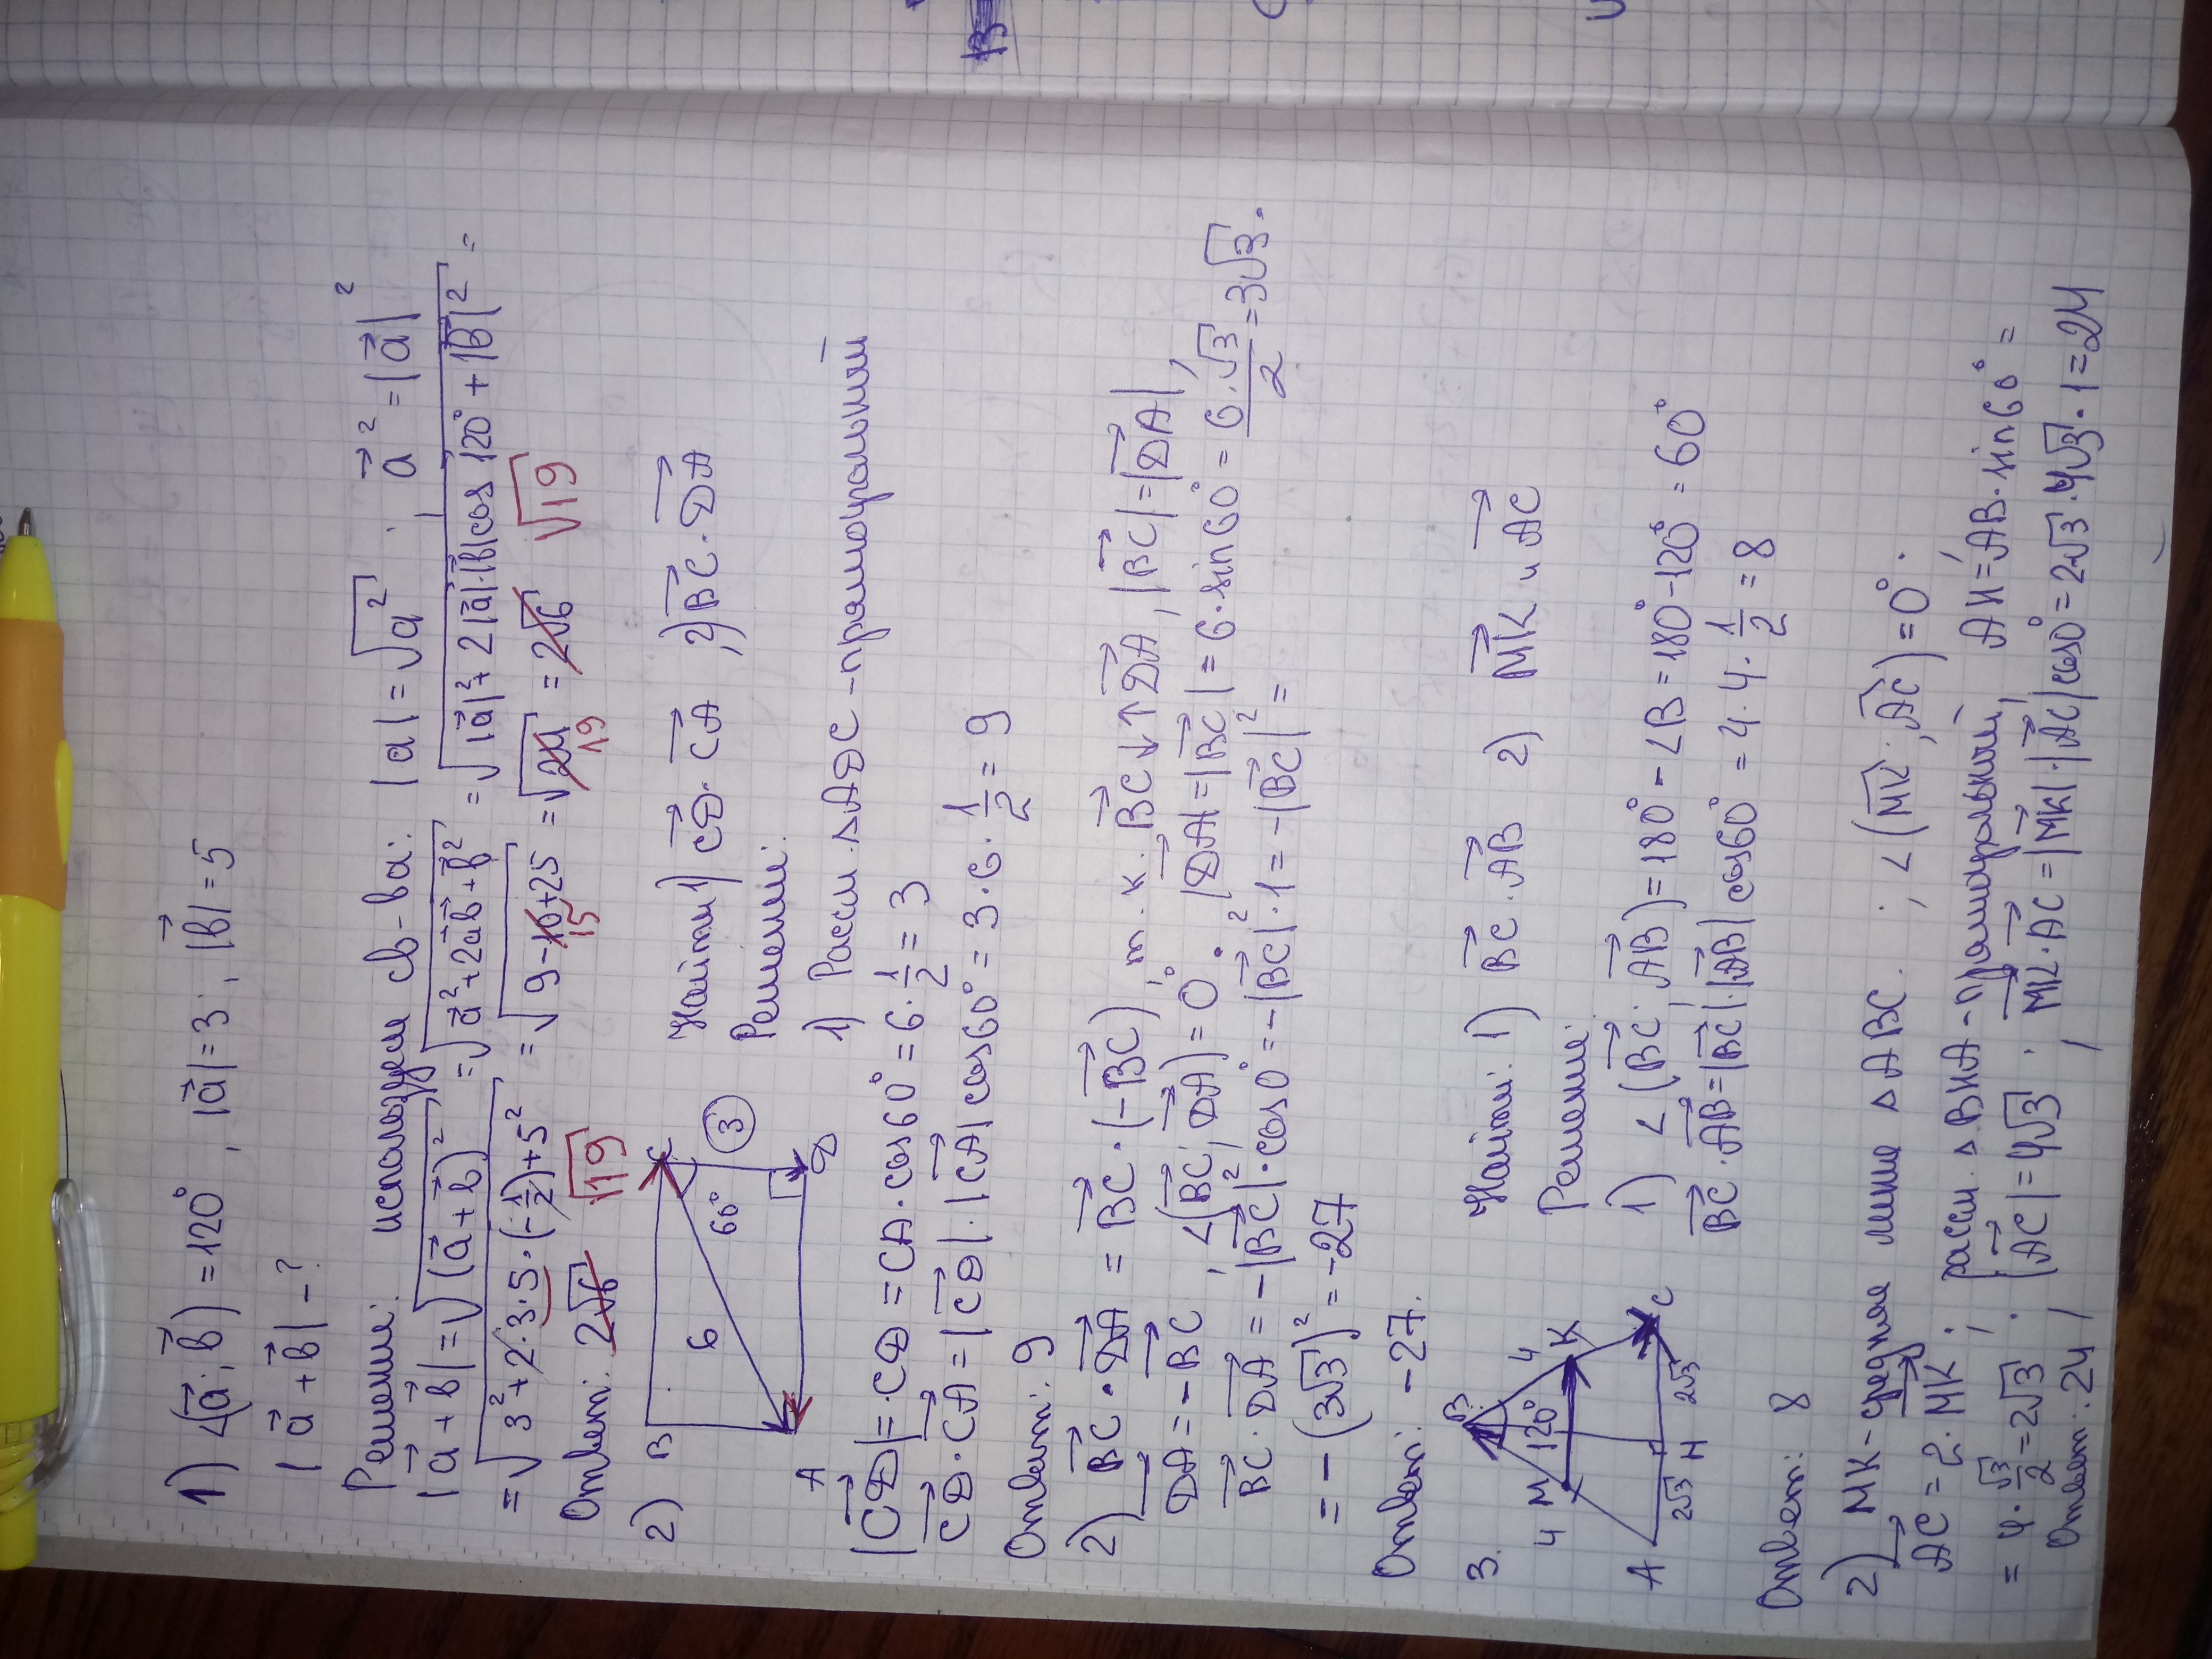 1) ∠(a⃗; b⃗) = 120°, |a⃗| = 3; |b⃗| = 5
|a⃗ + b⃗| - ?
Решение: используем св-ва: |a| = √a⃗²; a⃗² = |a⃗|²
|a⃗ + b⃗| = √(a⃗ + b⃗)² = √a⃗² + 2a⃗b⃗ + b⃗² = √|a⃗|² + 2|a⃗|·|b⃗|cos 120° + |b⃗|² =
= √3² + 2·3·5·(-1/2) + 5² = √9 - 10 + 25 = √24 = 2√6 √19
15 19
Ответ: 2√6 √19
2) B C Найти 1) CD⃗ · CA⃗, 2) BC⃗ · DA⃗
6 60° 3 Решение:
A D 1) Рассм. ΔADC - прямоугольный
|CD⃗| = CD = CA · cos60° = 6 · 1/2 = 3
CD⃗ · CA⃗ = |CD⃗| · |CA⃗| cos60° = 3 · 6 · 1/2 = 9
Ответ: 9
2) BC⃗ · DA⃗ = BC⃗ · (-BC⃗), т. к. BC⃗ ↓↑ DA⃗, |BC⃗| = |DA⃗|,
DA⃗ = -BC⃗, ∠(BC⃗; DA⃗) = 0°. |DA⃗| = |BC⃗| = 6 · sin60° = 6·√3/2 = 3√3.
BC⃗ · DA⃗ = -|BC⃗|² · cos0° = -|BC⃗|² · 1 = -|BC⃗|² =
= -(3√3)² = -27
Ответ: -27.
3. B Найти: 1) BC⃗ · AB⃗ 2) MK⃗ и AC⃗
4 M 120° 4 K Решение:
A 2√3 H 2√3 C 1) ∠(BC⃗; AB⃗) = 180° - ∠B = 180° - 120° = 60°
BC⃗ · AB⃗ = |BC⃗| · |AB⃗| cos60° = 4 · 4 · 1/2 = 8
Ответ: 8
2) MK - средняя линия ΔABC. ; ∠(MK⃗; AC⃗) = 0°.
AC⃗ = 2 · MK⃗; рассм. ΔBHA - прямоугольный, AH = AB · sin60° =
= 4 · √3/2 = 2√3; |AC⃗| = 4√3; MK⃗ · AC⃗ = |MK⃗| · |AC⃗| cos0° = 2√3 · 4√3 · 1 = 24
Ответ: 24